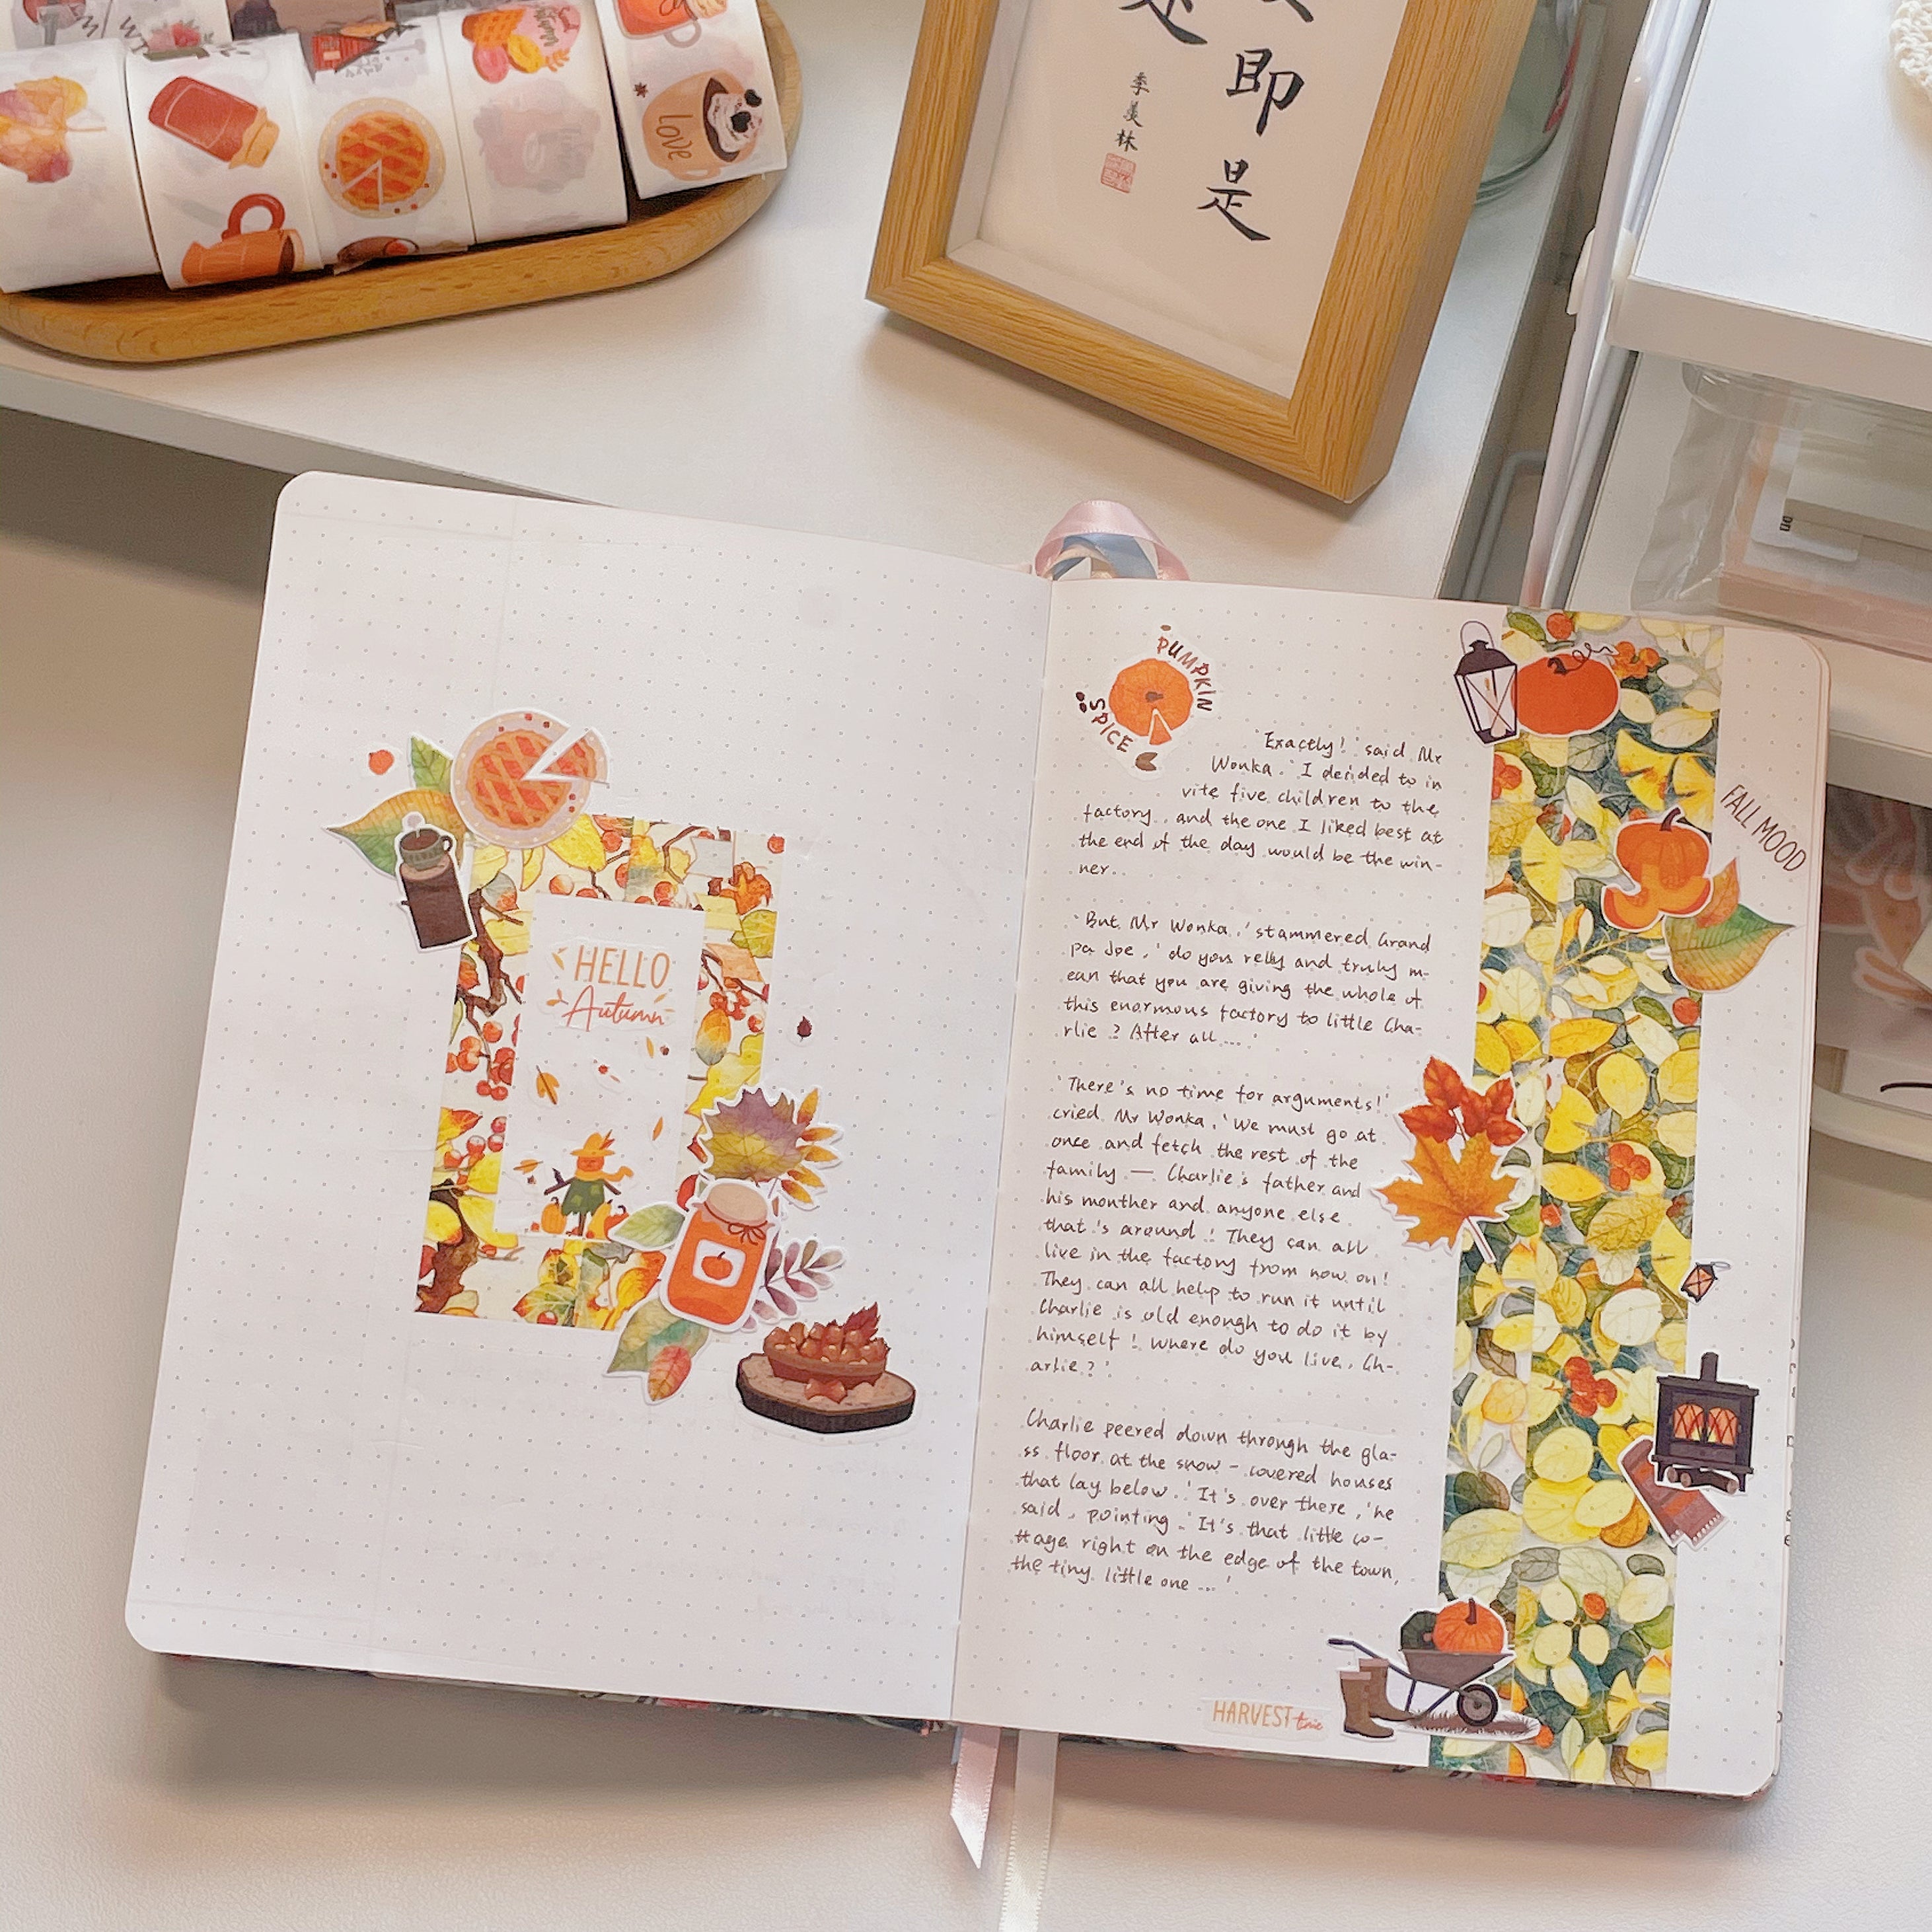 love
即
是
季羡林
HELLO
Autumn
PUMPKIN
SPICE
'Exactly!' said Mr
Wonka. 'I decided to in
vite five children to the
factory, and the one I liked best at
the end of the day would be the win-
ner..
'But Mr Wonka,' stammered Grand
pa Joe, 'do you relly and truly m-
ean that you are giving the whole of
this enormous factory to little Cha-
rlie? After all....'
'There's no time for arguments!'
cried Mr Wonka. 'We must go at
once and fetch the rest of the
family — Charlie's father and
his monther and anyone else
that's around! They can all
live in the factory from now on!
They can all help to run it until
Charlie is old enongh to do it by
himself! Where do you live, Ch-
arlie?'
Charlie peered down through the gla-
ss floor at the snow-covered houses
that lay below. 'It's over there,' he
said, pointing. 'It's that little co-
ttage right on the edge of the town,
the tiny little one....'
FALL MOOD
HARVEST time